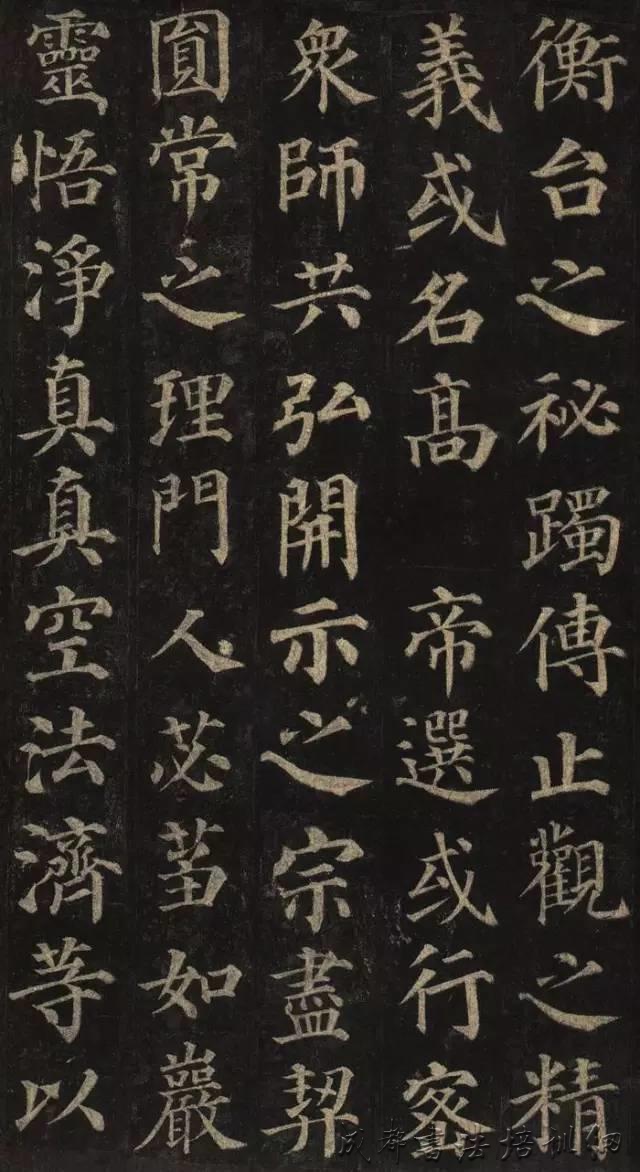 衡台之祕躅傳止觀之精
義或名髙 帝選或行宻
衆師共弘開示之宗盡契
圎常之理門人苾蒭如巖
靈悟淨真真空法濟等以
成都書法培训网